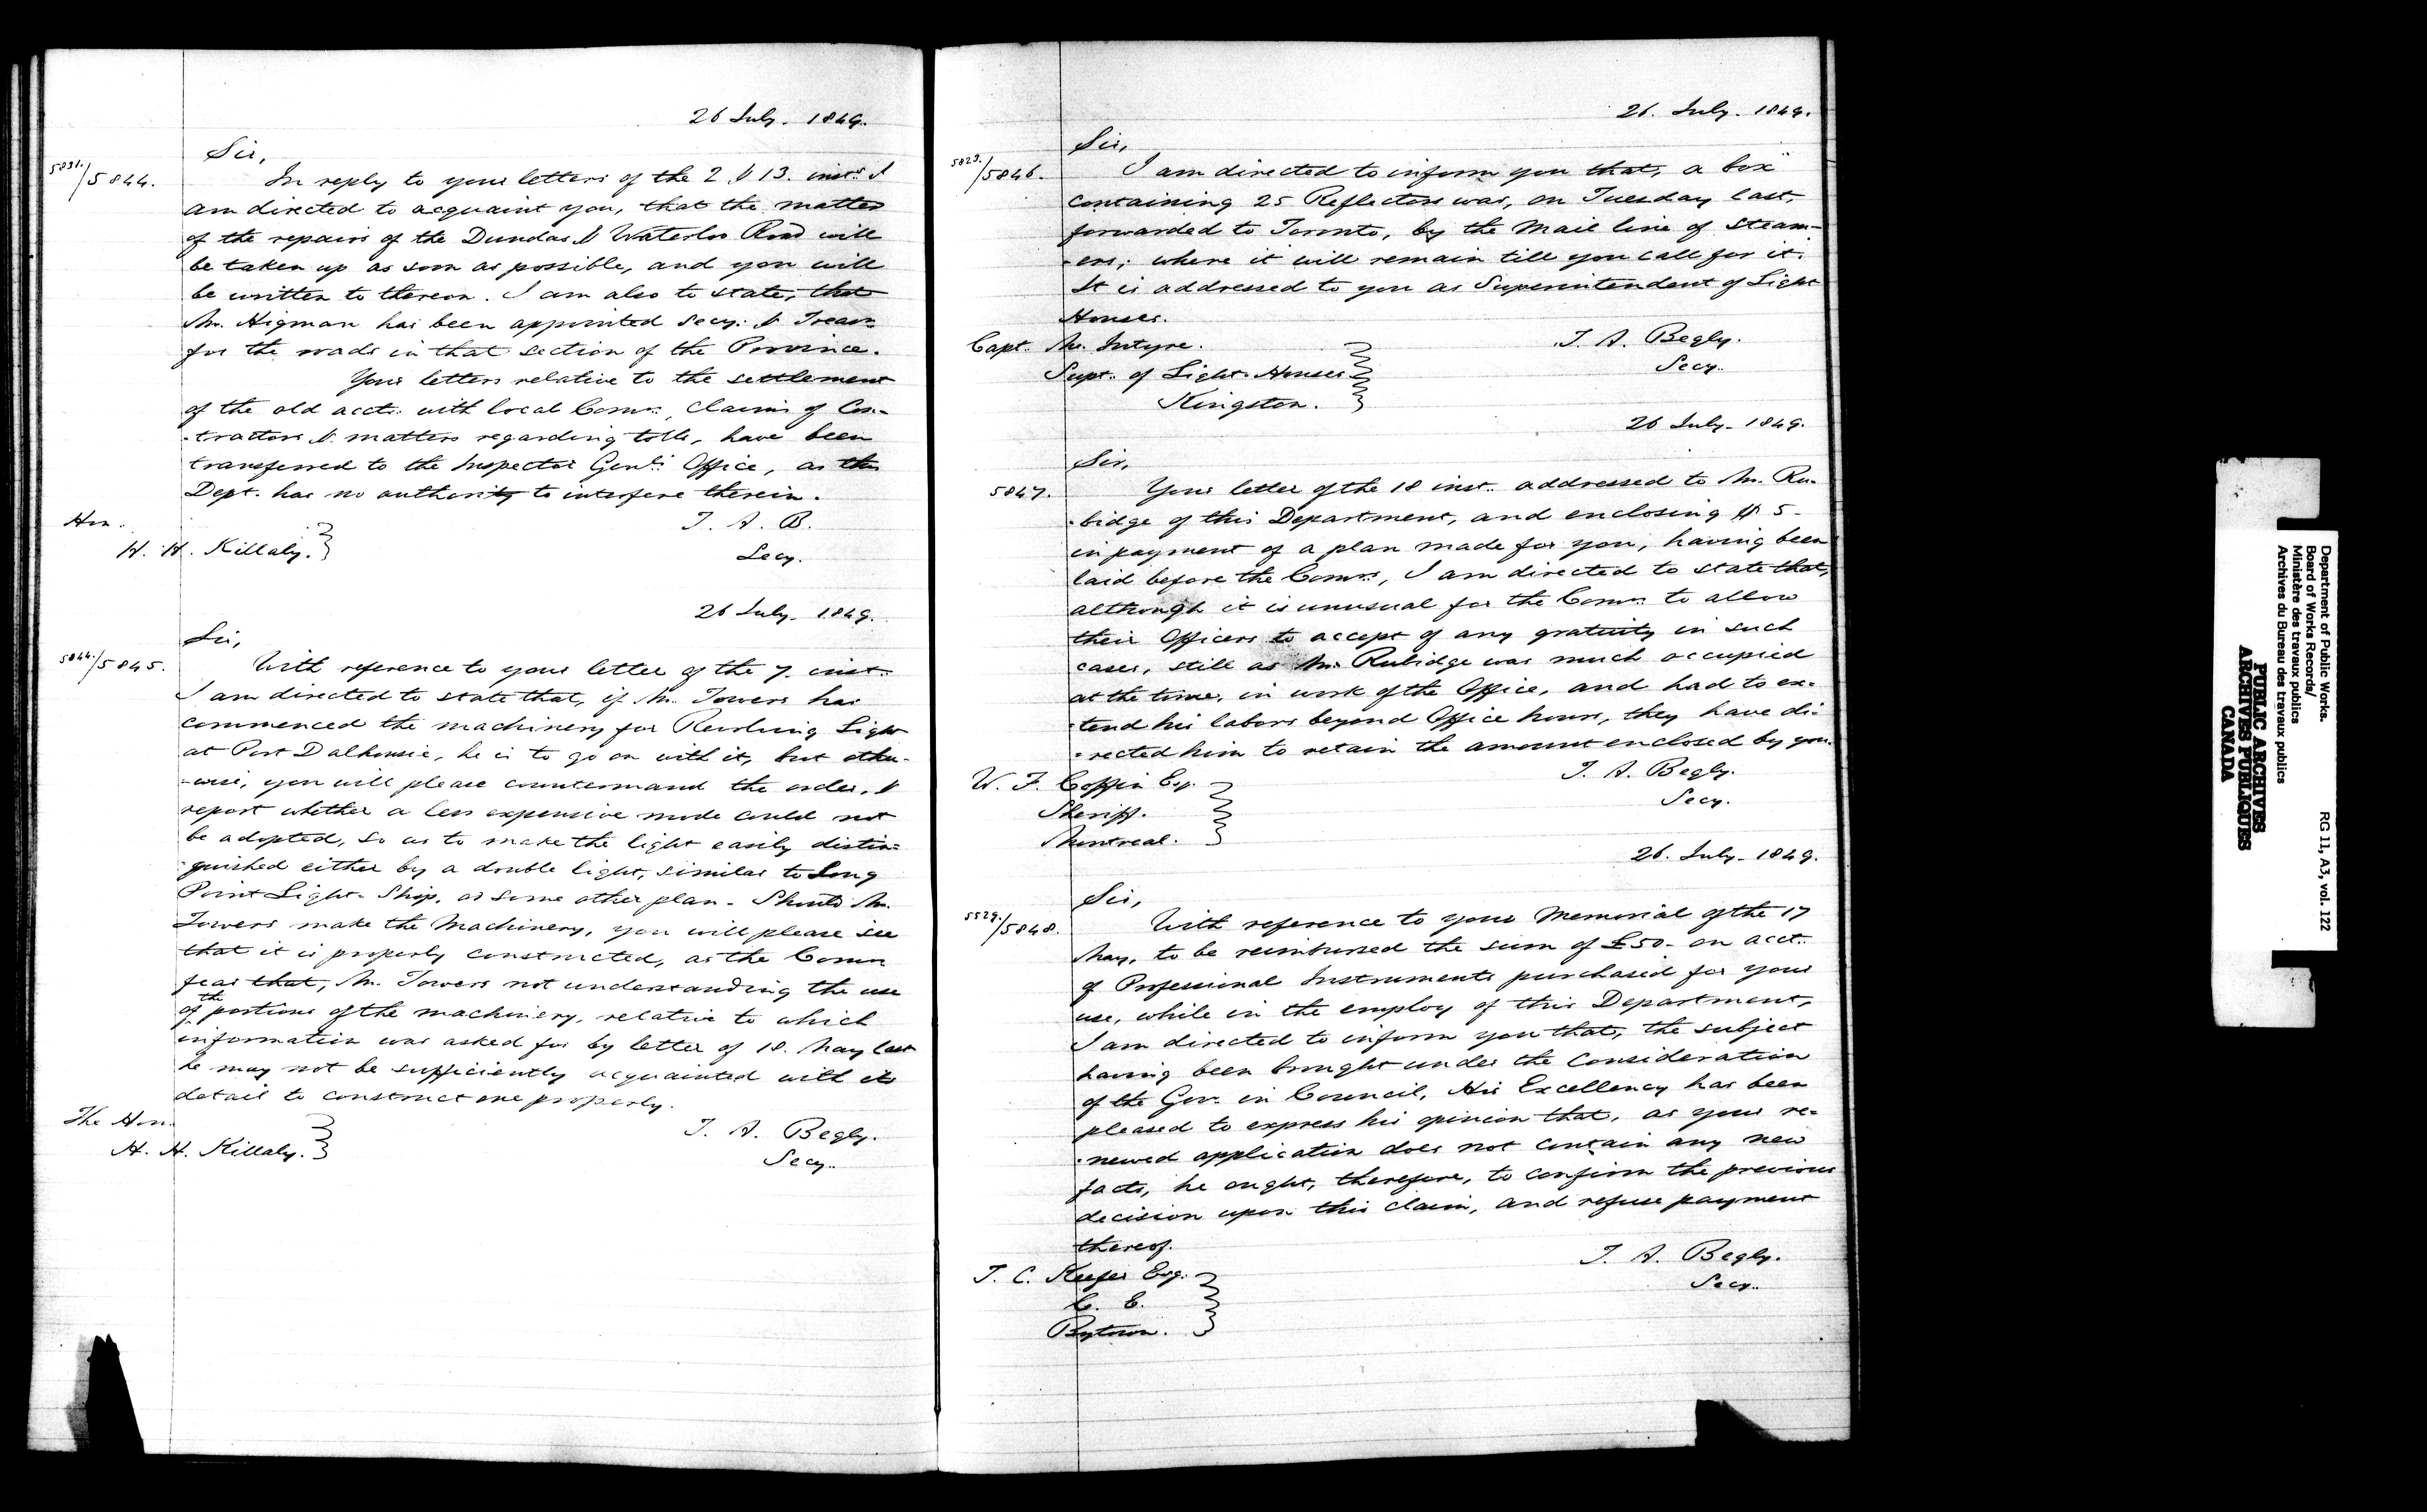 26 July. 1849.
Sir,
5831./5844.
In reply to your letters of the 2 & 13. inst: I
am directed to acquaint you, that the matter
of the repairs of the Dundas & Waterloo Road will
be taken up as soon as possible, and you will
be written to thereon. I am also to state, that
Mr. Higman has been appointed Secy: & Treasr.
for the roads in that section of the Province.
Your letters relative to the settlement
of the old accts: with local Comrs:, Claims of Con-
-tractors & matters regarding tolls, have been
transferred to the Inspector Genl's Office, as this
Dept. has no authority to interfere therein.
Hon.
H. H. Killaly.
T. A. B.
Secy.
26 July. 1849.
Sir,
5844./5845.
With reference to your letter of the 7. inst.
I am directed to state that, if Mr. Towers has
commenced the machinery for Revolving Light
at Port Dalhousie, he is to go on with it, but other-
-wise, you will please countermand the order, &
report whether a less expensive mode could not
be adopted, so as to make the light easily distin-
-guished either by a double light, similar to Long
Point Light-Ship, or some other plan. Should Mr.
Towers make the Machinery, you will please see
that it is properly constructed, as the Comrs
fear that, Mr. Towers not understanding the use
of the portions of the machinery, relative to which
information was asked for by letter of 18. May last
he may not be sufficiently acquainted with its
detail to construct one properly.
The Hon.
H. H. Killaly.
T. A. Begly.
Secy.
26. July. 1849.
Sir,
5829./5846.
I am directed to inform you that, a box
containing 25 Reflectors was, on Tuesday last,
forwarded to Toronto, by the Mail line of Steam-
-ers; where it will remain till you call for it.
It is addressed to you as Superintendent of Light
Houses.
Capt. Mc. Intyre.
Supt. of Light-Houses
Kingston.
T. A. Begly.
Secy.
26 July. 1849.
Sir,
5847.
Your letter of the 18 inst: addressed to Mr. Ru-
-bidge of this Department, and enclosing $ 5-
in payment of a plan made for you, having been
laid before the Comrs:, I am directed to state that,
although it is unusual for the Comrs: to allow
their Officers to accept of any gratuity in such
cases, still as Mr. Rubidge was much occupied
at the time, in work of the Office, and had to ex-
-tend his labors beyond Office hours, they have di-
-rected him to retain the amount enclosed by you.
W. F. Coffin Esq.
Sheriff.
Montreal.
T. A. Begly.
Secy.
26. July. 1849.
Sir,
5529./5848.
With reference to your Memorial of the 17
May, to be reimbursed the sum of £50- on acct:
of Professional Instruments purchased for your
use, while in the employ of this Department,
I am directed to inform you that, the subject
having been brought under the Consideration
of the Govr. in Council, His Excellency has been
pleased to express his opinion that, as your re-
-newed application does not contain any new
facts, he ought, therefore, to confirm the previous
decision upon this claim, and refuse payment
thereof.
T. C. Keefer Esq.
C. E.
Bytown.
T. A. Begly.
Secy.
Department of Public Works.
Board of Works Records/
Ministère des travaux publics
Archives du Bureau des travaux publics
RG 11, A3, vol. 122
PUBLIC ARCHIVES
ARCHIVES PUBLIQUES
CANADA